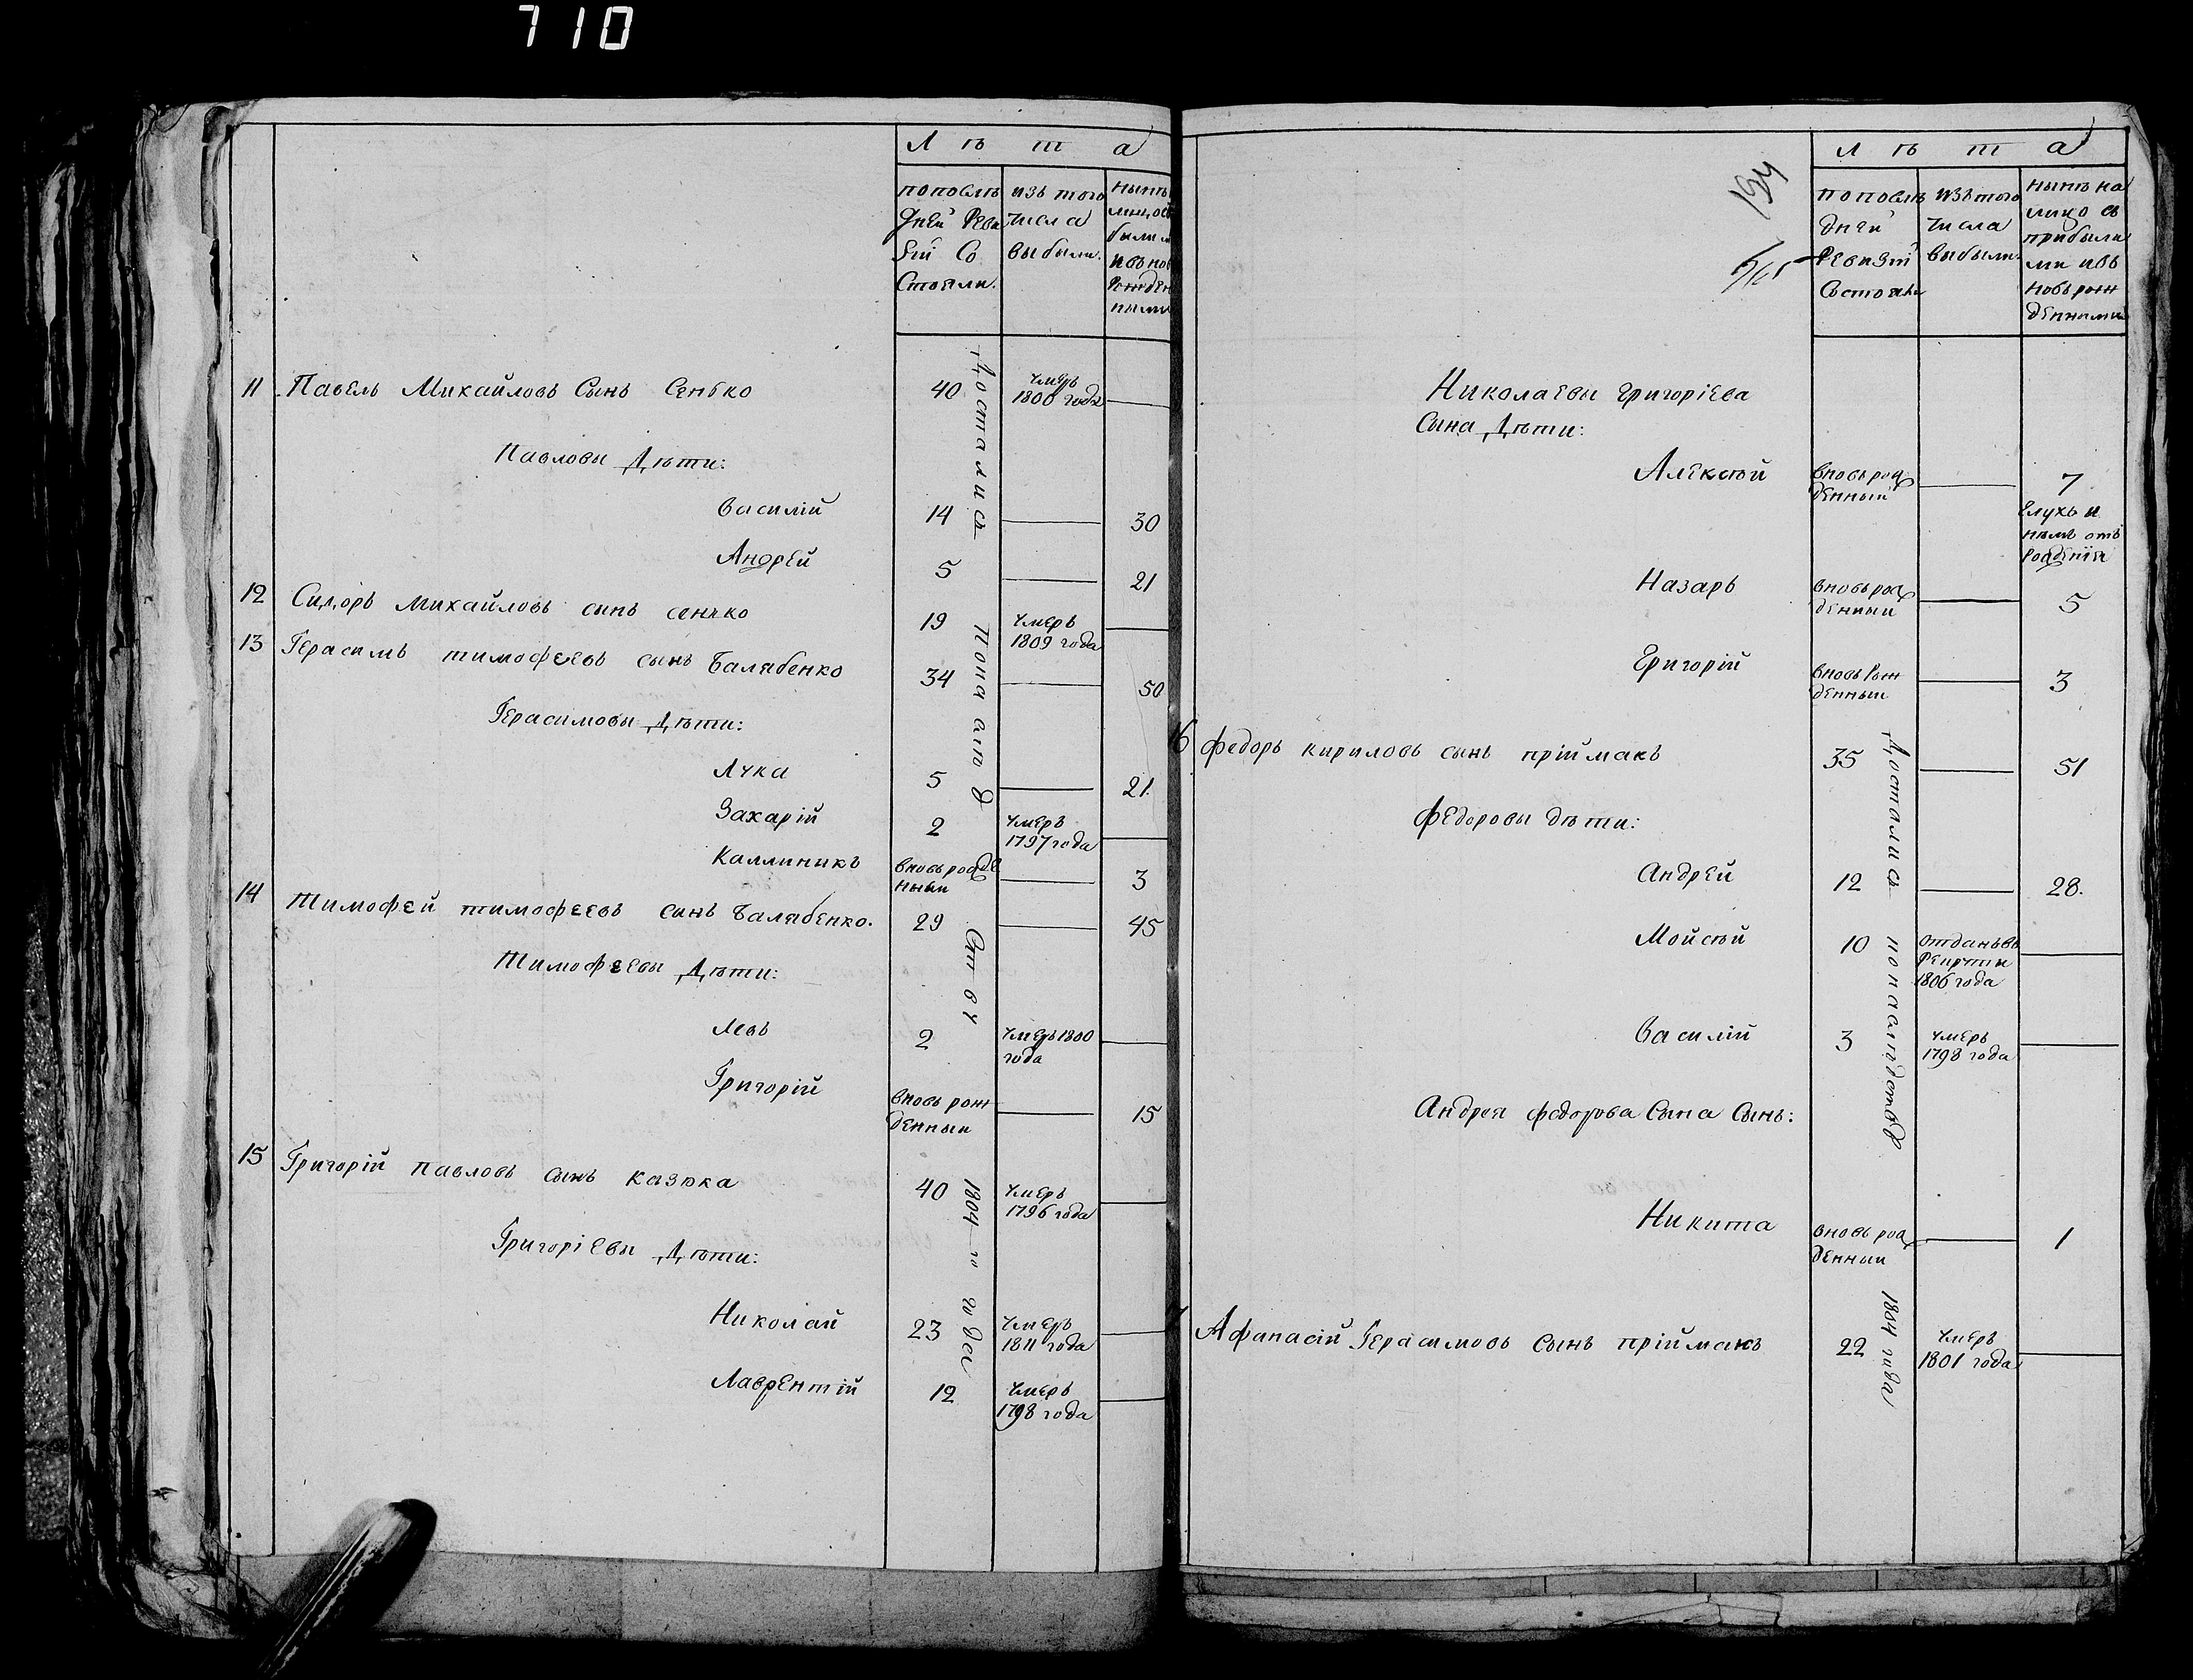 710
Л ѣ т а
пополѣ
дней Реви
зіи Со
стояли.
изъ того
числа
выбыли.
нынѣ
лицо съ
были
и въ нов
рожден
ными
11 Павелъ Михайловъ Сынъ Сенько 40 умеръ
1800 года
Павловы Дѣти:
Василій 14 30
Андрей 5 21
12 Сидоръ Михайловъ сынъ сенько 19 умеръ
1809 года
13 Герасимъ тимофеевъ сынъ Балябенко 34 50
Герасимовы Дѣти:
Лука 5 21.
Захарій 2 умеръ
1797 года
Каллиникъ вновь рожде
нный 3
14 Тимофей тимофеевъ сынъ балябенко. 29 45
Тимофеевы Дѣти:
Левъ 2 умеръ 1800
года
Григорій вновь рож
денный 15
15 Григорій павловъ сынъ казюка 40 умеръ
1796 года
Григоріевы Дѣти:
Николай 23 умеръ
1811 года
Лаврентій 12 умеръ
1798 года
Достались
1804 го года
Л ѣ т а
пополѣ
дней
Ревизіи
Состояли
изъ того
числа
выбыли.
нынѣ на
лицо съ
прибылы
ми и въ
новь рож
денными
Николаевы григоріева
Сына Дѣти:
Алексѣй вновь рож
денный 7
глухъ и
немъ отъ
рожденія
Назаръ вновь рож
денный 5
Григорій вновь рож
денный 3
16 федоръ кириловъ сынъ пріймакъ 35 51
Федоровы дѣти:
Андрей 12 28.
Мойсѣй 10 отданъ въ
рекруты
1806 года
Василій 3 умеръ
1798 года
Андрея федорова Сына Сынъ:
Никита вновь рож
денный 1
Афанасій Герасимовъ Сынъ пріймакъ 22 умеръ
1801 года
Достались
1804 года